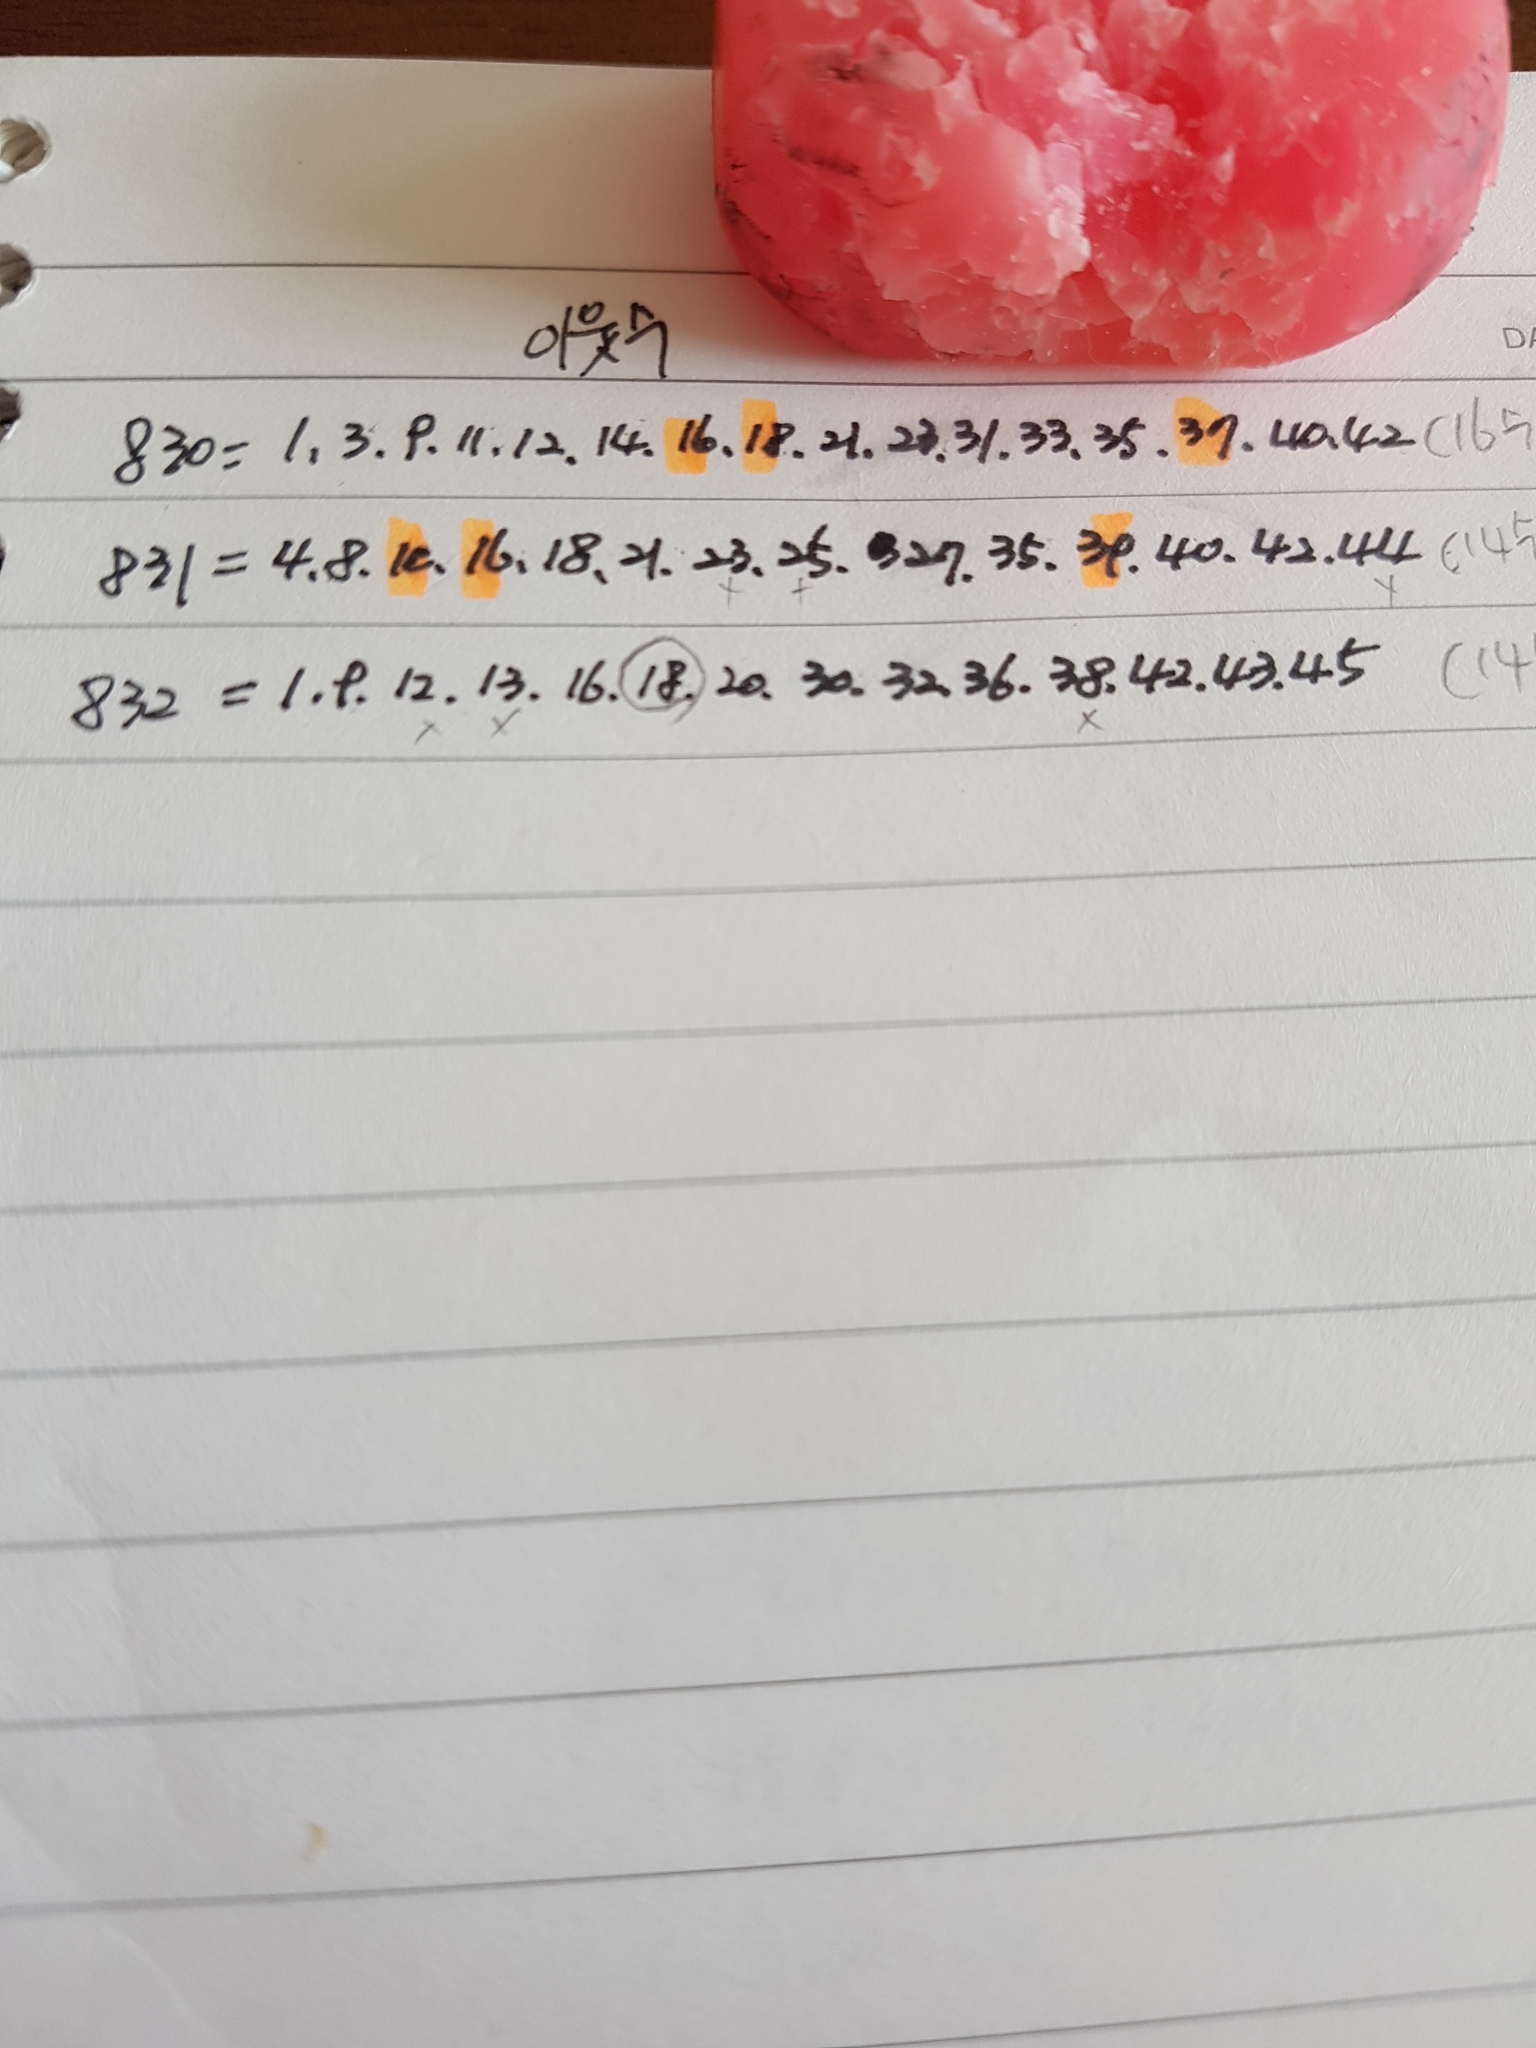 이웃수
DA
830= 1. 3. 9. 11. 12. 14. 16. 18. 21. 23. 31. 33. 35. 37. 40. 42 (16수
831 = 4. 8. 10. 16. 18. 21. 23. 25. 27. 35. 39. 40. 42. 44 (14수
832 = 1. 9. 12. 13. 16. 18. 20. 30. 32. 36. 38. 42. 43. 45 (14